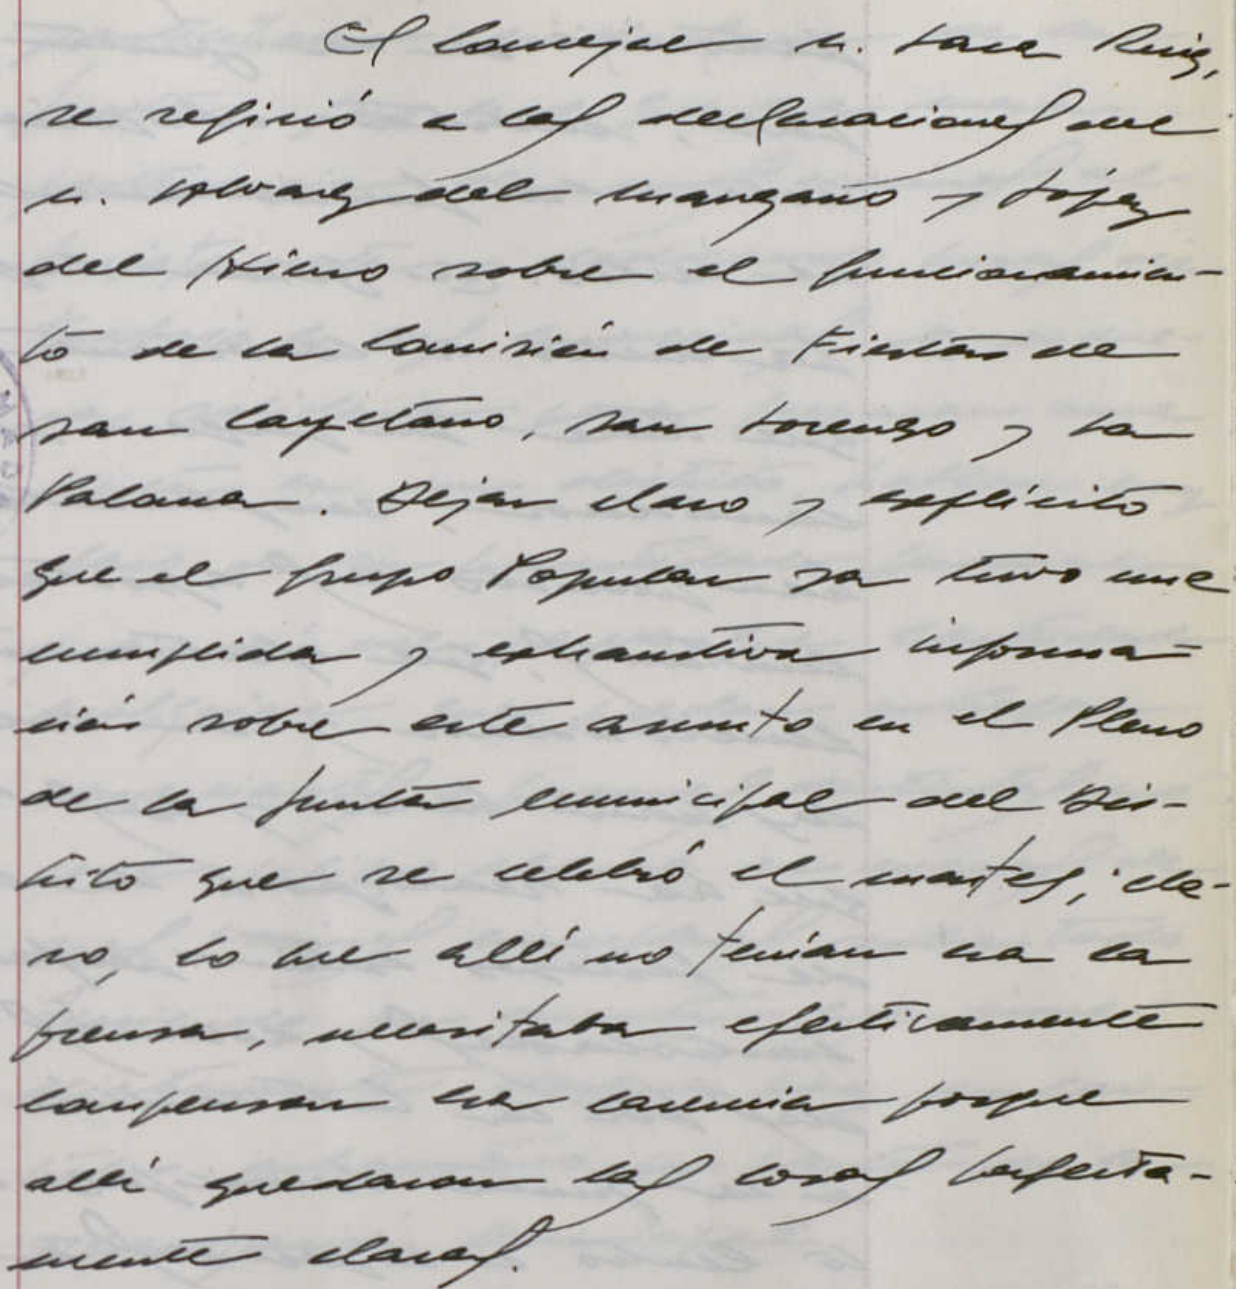 El Concejal Sr. Lara Ruiz,
se refirió a las declaraciones del
Sr. Alvarez del Manzano y López
del Hierro sobre el funcionamien-
to de la Comisión de Fiestas de
San Cayetano, San Lorenzo y La
Paloma. Dejar claro y explícito
que el Grupo Popular ya tuvo una
cumplida y exhaustiva informa-
ción sobre este asunto en el Pleno
de la Junta Municipal del Dis-
trito que se celebró el martes; cla-
ro, lo que allí no tenían era la
prensa, necesitaba efectivamente
compensar esa carencia porque
allí quedaron las cosas perfecta-
mente claras.